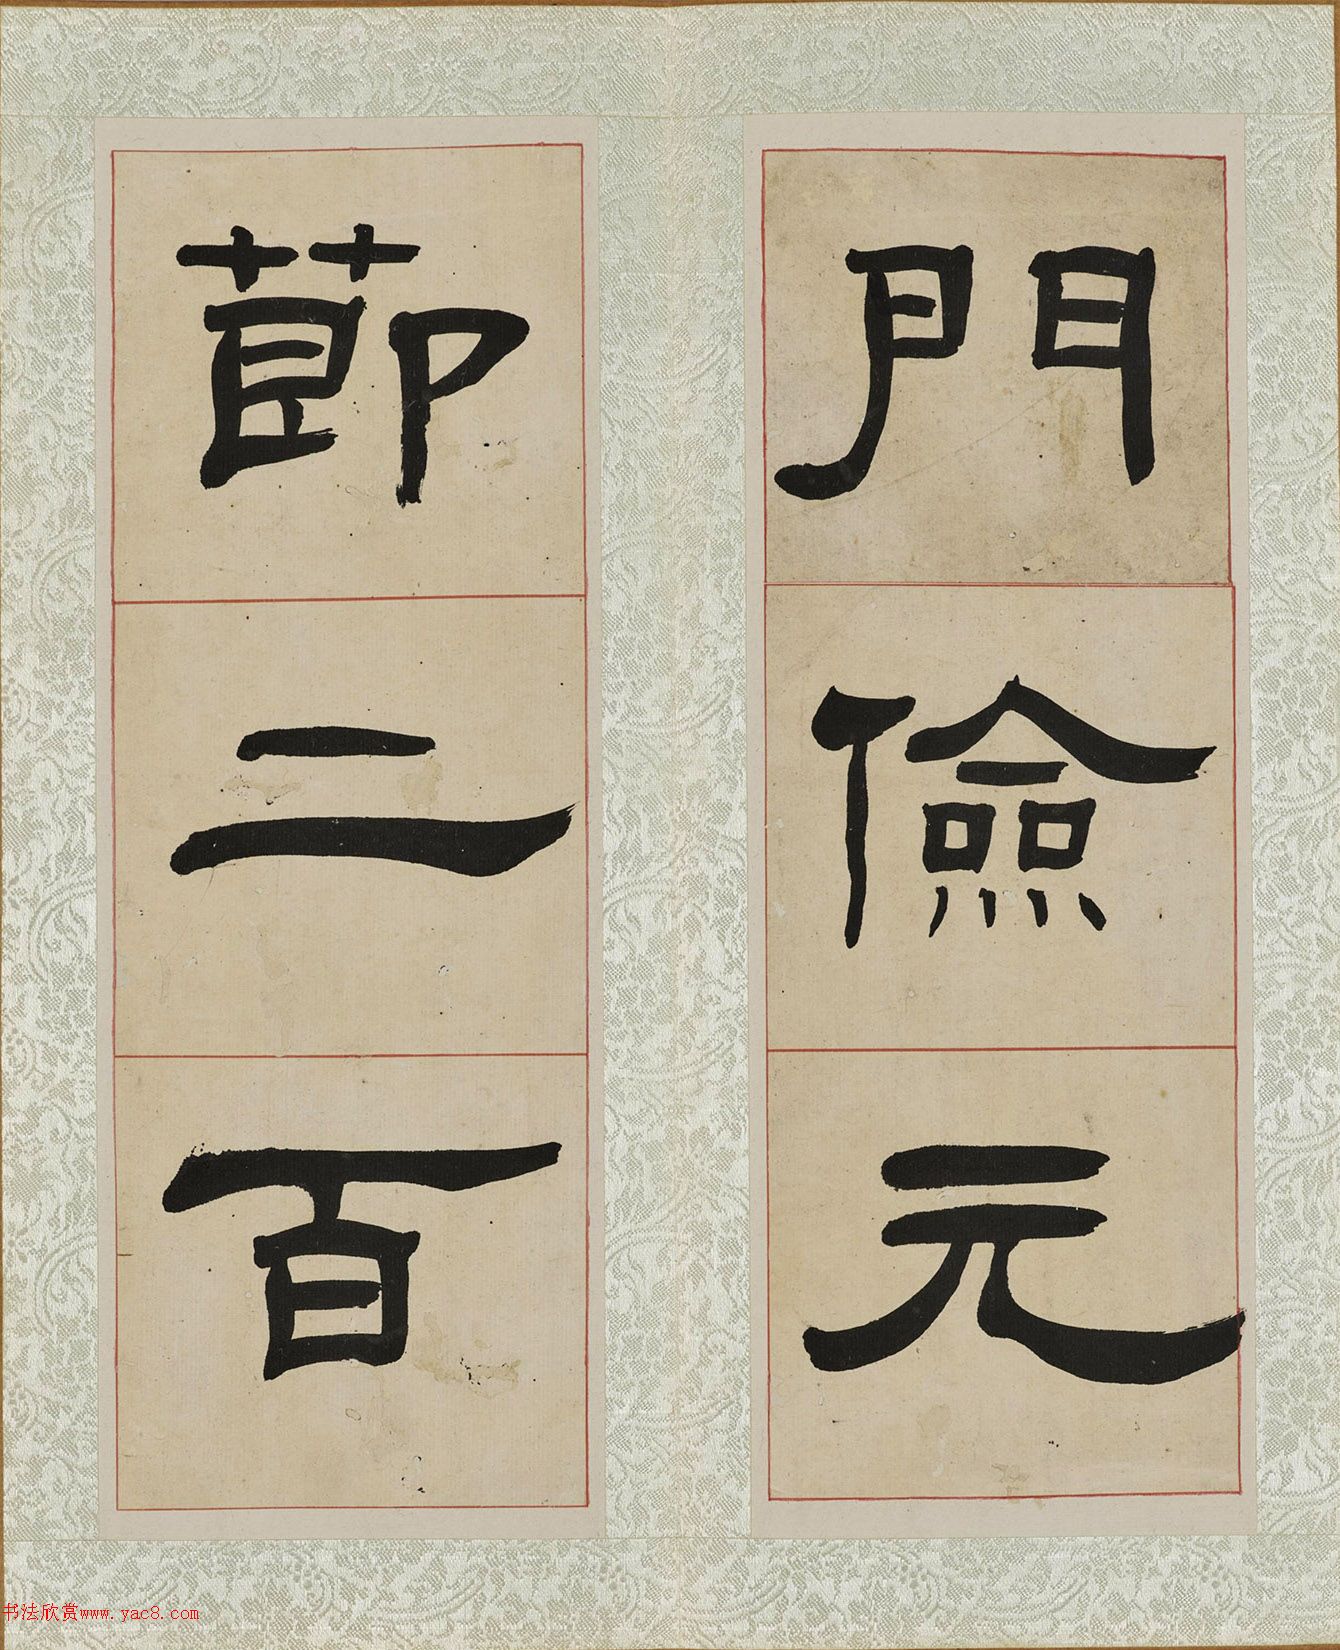 門儉元
節二百
书法欣赏www.yac8.com